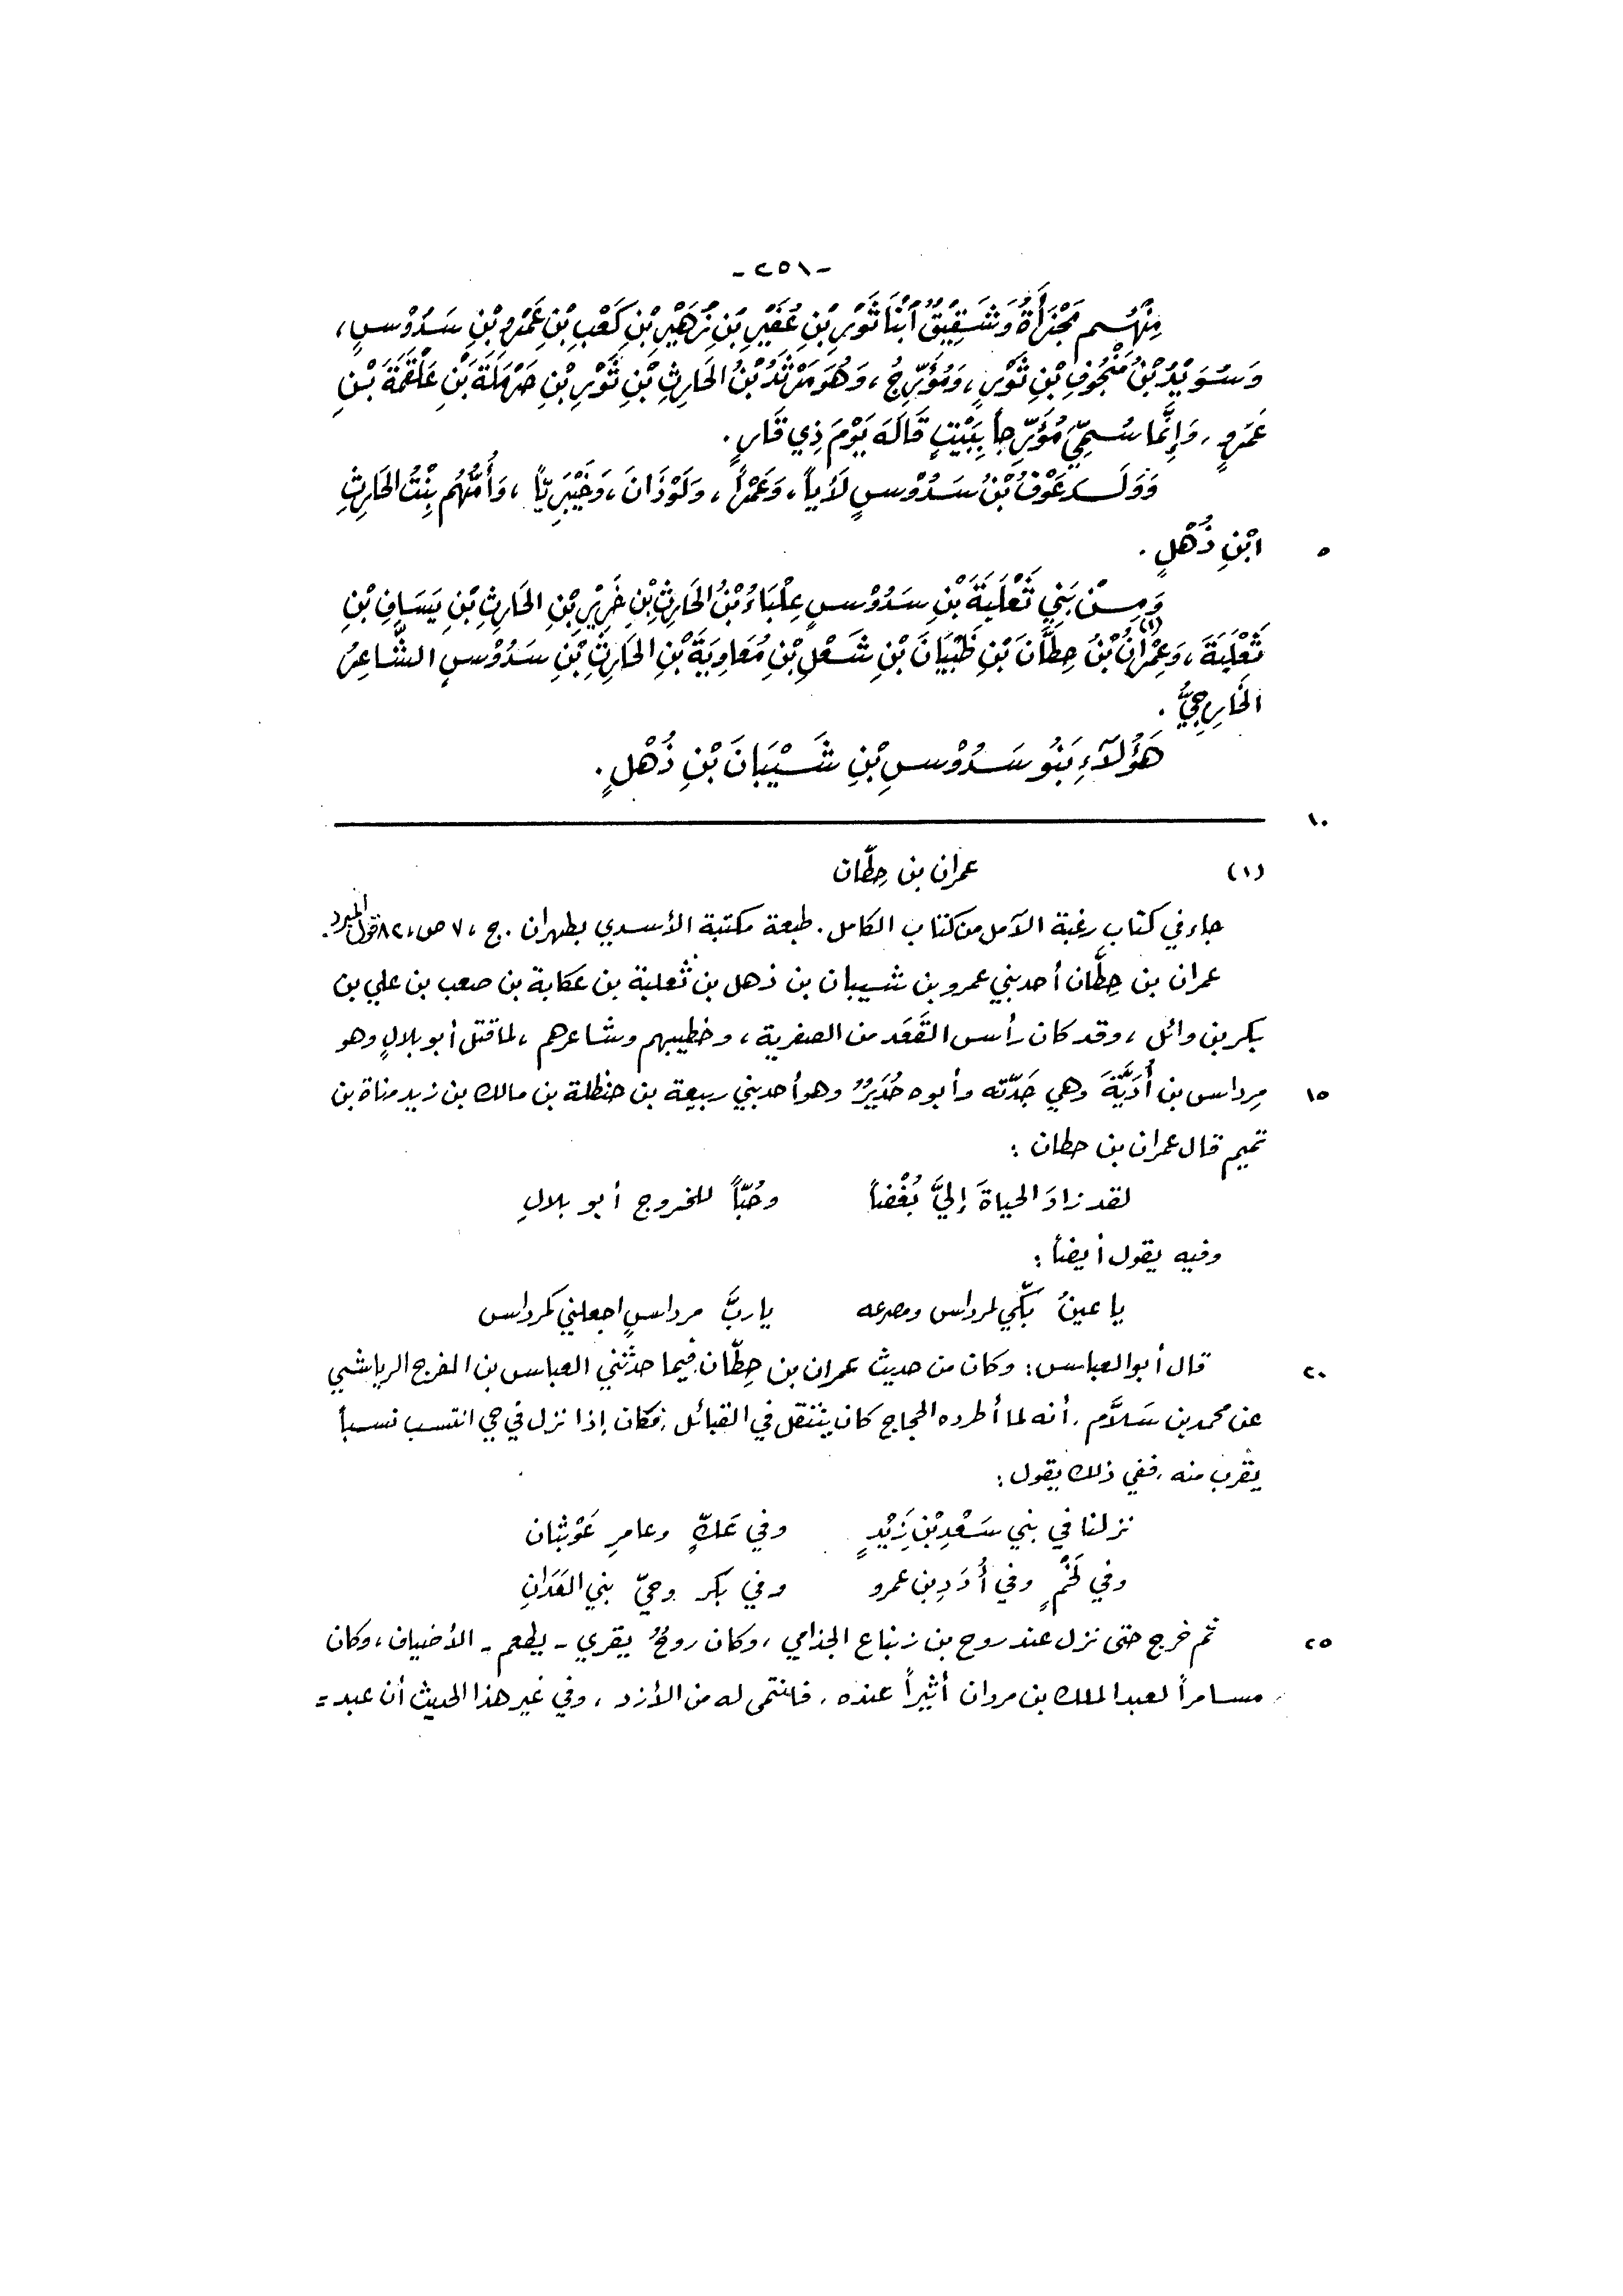 -٢٥١-
مِنْهُم مَجْزَأَةُ وَشَقِيْقٌ ابْنَا ثَوْرِ بْنِ عُفَيْرِ بْنِ زُهَيْرِ بْنِ كَعْبِ بْنِ عَمْرِو بْنِ سَدُوْسٍ ،
وَسُوَيْدُ بْنُ مَنْجُوفِ بْنِ ثَوْرٍ ، وَمُؤَرِّجُ ، وَهُوَ مَرْثَدُ بْنُ الحَارِثِ بْنِ ثَوْرِ بْنِ حَرْمَلَةَ بْنِ عَلْقَمَةَ بْنِ
عَمْرٍو ، وَإِنَّمَا سُمِّيَ مُؤَرِّجاً بِبَيْتٍ قَالَهَ يَوْمَ ذِي قَارٍ .
وَوَلَدَ عَوْفُ بْنُ سَدُوْسٍ لَأْياً ، وَعَمْراً ، وَلَوْذَانَ ، وَخَيْبَرِيّاً ، وَأُمُّهُم بِنْتُ الحَارِثِ
ابْنِ ذُهْلٍ . ٥
وَمِنْ بَنِي ثَعْلَبَةَ بْنِ سَدُوْسٍ عِلْبَاءُ بْنُ الحَارِثِ بْنِ خَرِيْرِ بْنِ الحَارِثِ بْنِ يَسَافِ بْنِ
ثَعْلَبَةَ ، وَعِمْرَانُ (١) بْنُ حِطَّانَ بْنِ ظَبْيَانَ بْنِ شَعْلِ بْنِ مُعَاوِيَةَ بْنِ الحَارِثِ بْنِ سَدُوْسٍ الشَّاعِرُ
الخَارِجِيُّ .
هَؤُلَآءِ بَنُو سَدُوْسِ بْنِ شَيْبَانَ بْنِ ذُهْلٍ .
١٠
(١) عمران بن حِطَّان
جاء في كتاب رغبة الآمل من كتاب الكامل . طبعة مكتبة الأسدي بطهران . ج ، ٧ ص ، ٨٢ قول المبرد .
عمران بن حِطَّان أحد بني عمرو بن شيبان بن ذهل بن ثعلبة بن عكابة بن صعب بن علي بن
بكر بن وائل ، وقد كان رأس القَعَد من الصفرية ، وخطيبهم وشاعرهم ، لما قتل أبو بلالٍ وهو
مِرداس بن أُدَيَّةَ وهي جَدّته وأبوه حُدَيرٌ وهو أحد بني ربيعة بن حنظلة بن مالك بن زيد مناة بن ١٥
تميم قال عمران بن حطان :
لقد زادَ الحياةَ إليَّ بُغْضاً وحُبّاً للخروج أبو بلالِ
وفيه يقول أيضاً :
يا عينُ بكّي لمرداس ومصرعه يا ربَّ مرداسٍ اجعلني كمرداس
قال أبو العباس : وكان من حديث عمران بن حِطّان فيما حدثني العباس بن الفرج الرياشي ٢٠
عن محمد بن سَلاَّم ، أنه لما أطرده الحجاج كان يتنقل في القبائل ، فكان إذا نزل في حي انتسب نسباً
يقرب منه ، ففي ذلك يقول :
نزلنا في بني سَعْدِ بْنِ زَيْدٍ وفي عَكٍّ وعامرِ عَوْبَثان
وفي لَخْمٍ وفي أُدَدِ بن عمرو وفي بكر وحيّ بني العَدَانِ
ثم خرج حتى نزل عند روح بن زنباع الجذامي ، وكان روحٌ يقري - يطعم - الأضياف ، وكان ٢٥
مسامراً لعبد الملك بن مروان أثيراً عنده ، فانتمى له من الأزد ، وفي غير هذا الحديث أن عبد =